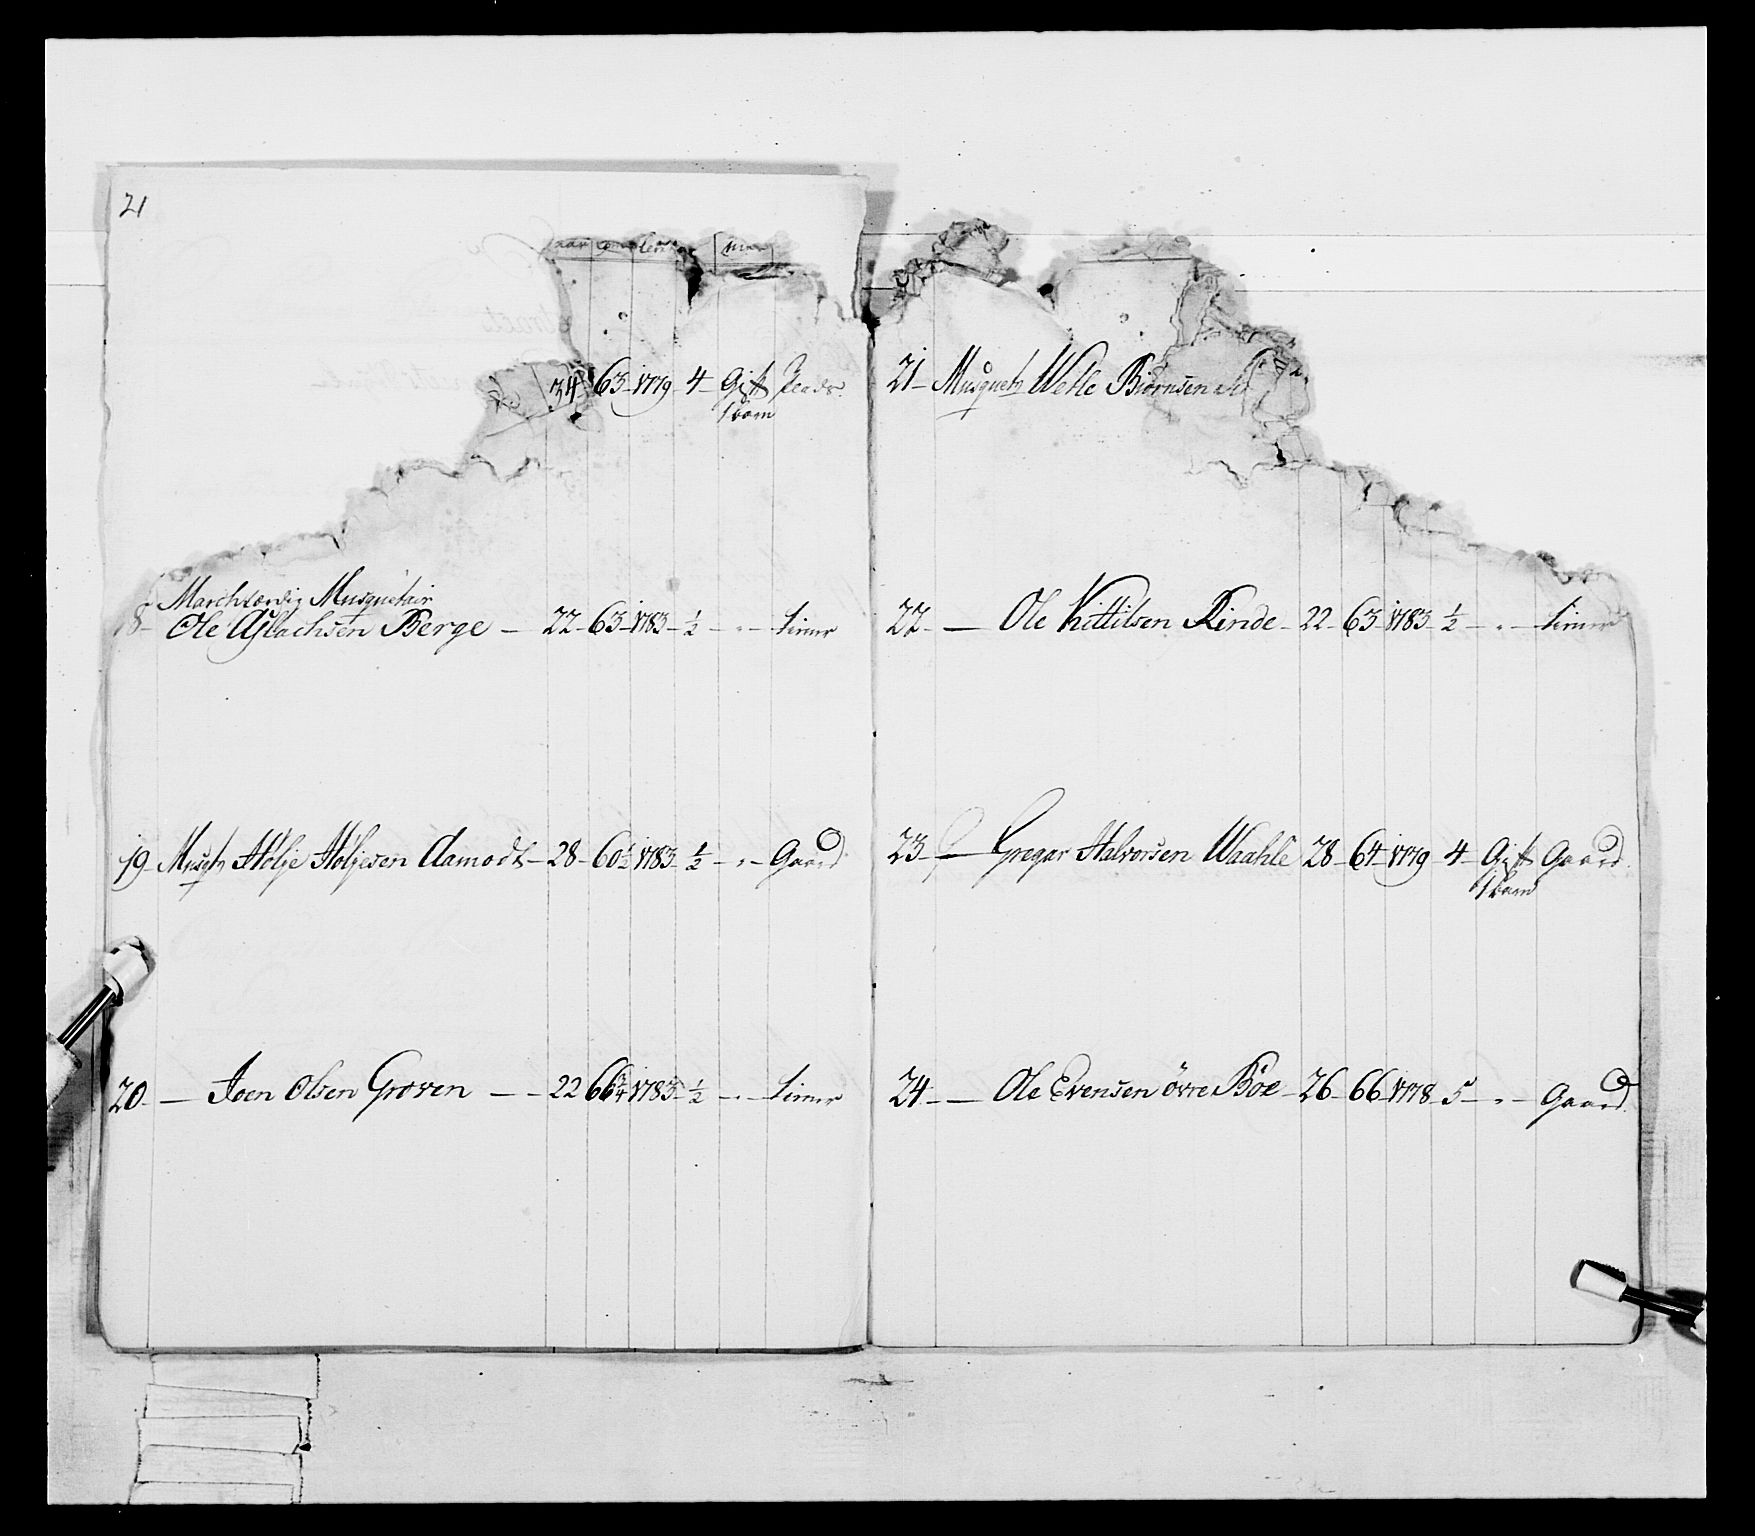 21
34 - 63 - 1779 - 4 - Gift
1 barn
Marchfærdig Musquetair
18 - Ole Aslachsen Berge - 22 - 63 - 1783 - ½ - " -
19 - Musqtr Hölje Höljesen Aamodt - 28 - 60½ - 1783 - ½ - " - Gaard
20 - — Joen Olsen Groven - - 22 66¾ 1783 - ½ - " -
21 - Musquetr Wetle Biörnsen
22 - — Ole Kittilsen Rinde - 22 - 63 - 1783 - ½ - " -
23 - — Gregar Halvorsen Waahle 28 - 64 - 1779 - 4 - Gift Gaard
1 barn
24 - — Ole Evensen övre Böe - 26 - 66 - 1778 - 5 - " - Gaard